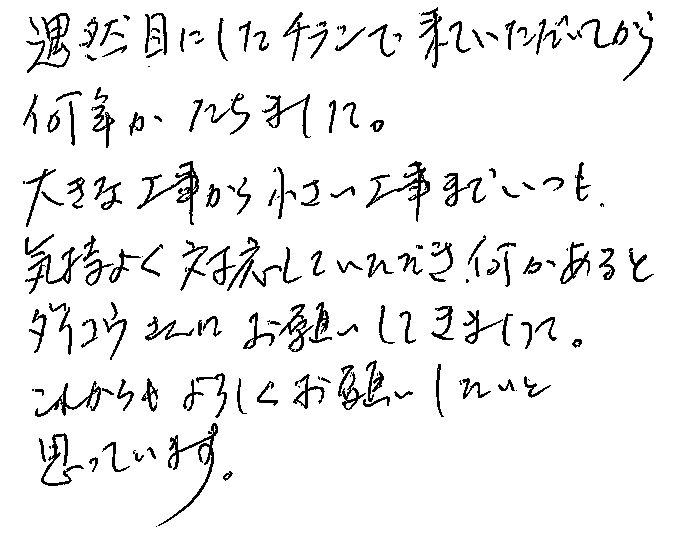 偶然目にしたチラシで来ていただいてから
何年かたちました。
大きな工事から小さい工事までいつも、
気持よく対応していただき、何かあると
ダイコウさんにお願いしてきました。
これからもよろしくお願いしたいと
思っています。